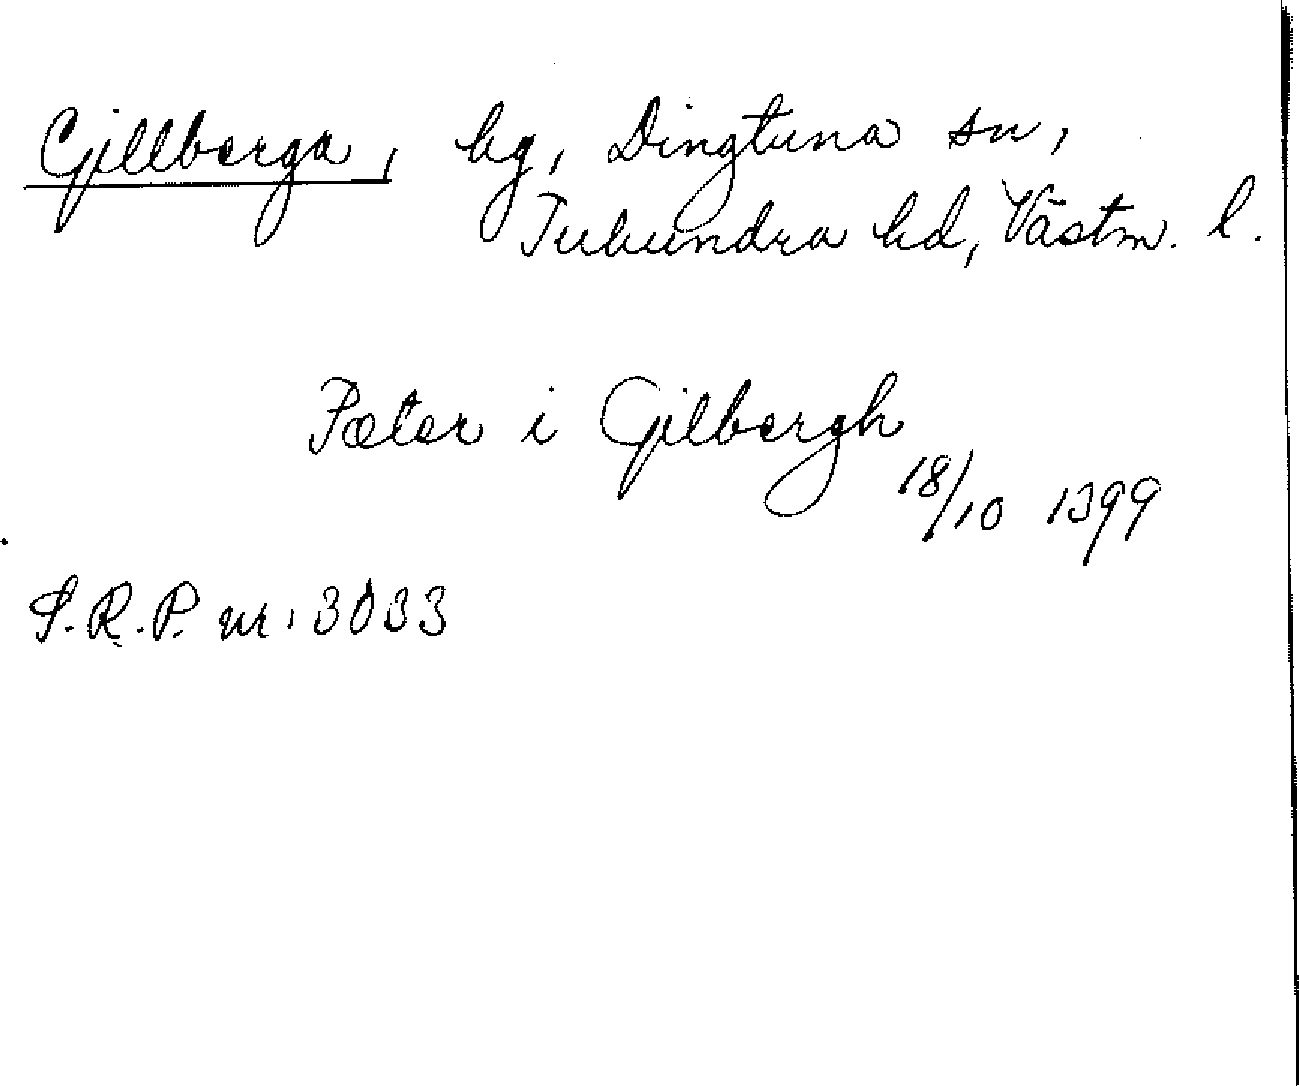 Gillberga, hg, Dingtuna sn,
Tuhundra hd, Västm. l.
Pæter i Gilbergh
18/10 1399
S.R.P. nr: 3033